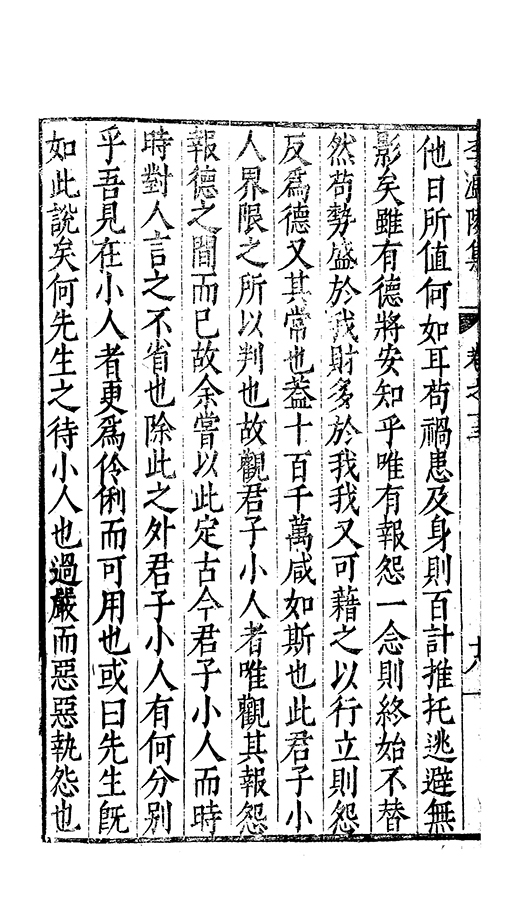 李溫陵集 卷之十三 十八
他日所值何如耳茍禍患及身則百計推托逃避無
影矣雖有德將安知乎唯有報怨一念則終始不替
然茍勢盛於我財多於我我又可藉之以行立則怨
反爲德又其常也葢十百千萬咸如斯也此君子小
人界限之所以判也故觀君子小人者唯觀其報怨
報德之間而已故余嘗以此定古今君子小人而時
時對人言之不省也除此之外君子小人有何分別
乎吾見在小人者更爲伶俐而可用也或曰先生旣
如此說矣何先生之待小人也過嚴而惡惡執怨也